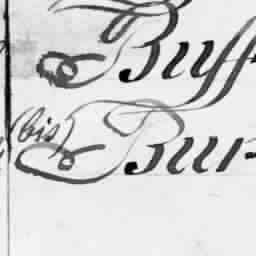 Buff
(bis) Bur